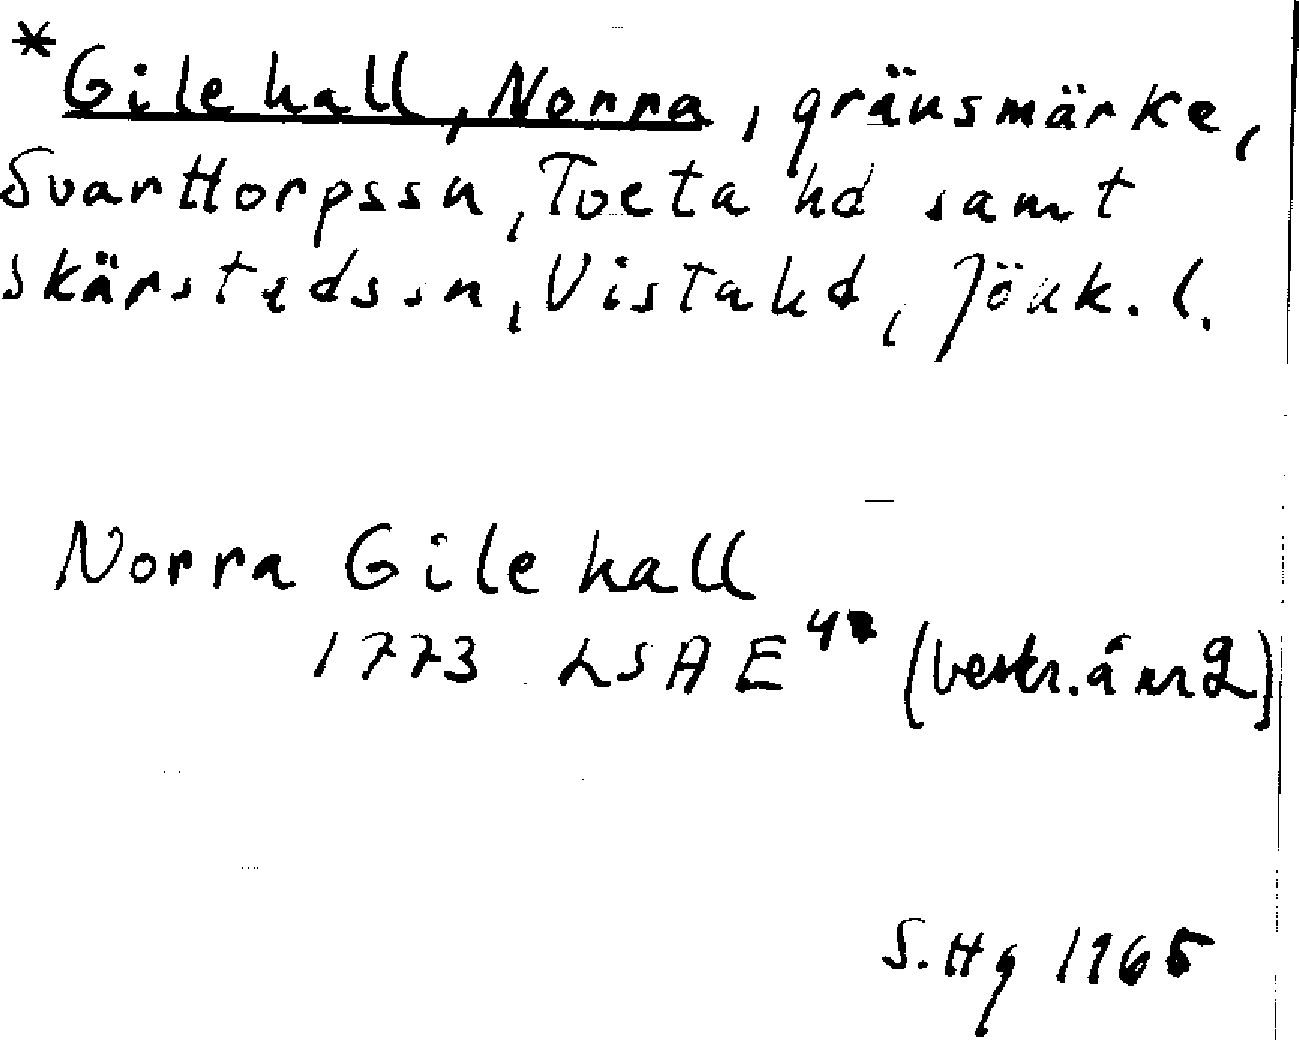 *Gile hall, Norra, gränsmärke,
Svarttorps sn, Tveta hd samt
Skärsteds sn, Vista hd, Jönk. l.
Norra Gile hall
1773 LSA E (beskr. å nr 2)
S. Hg 1965